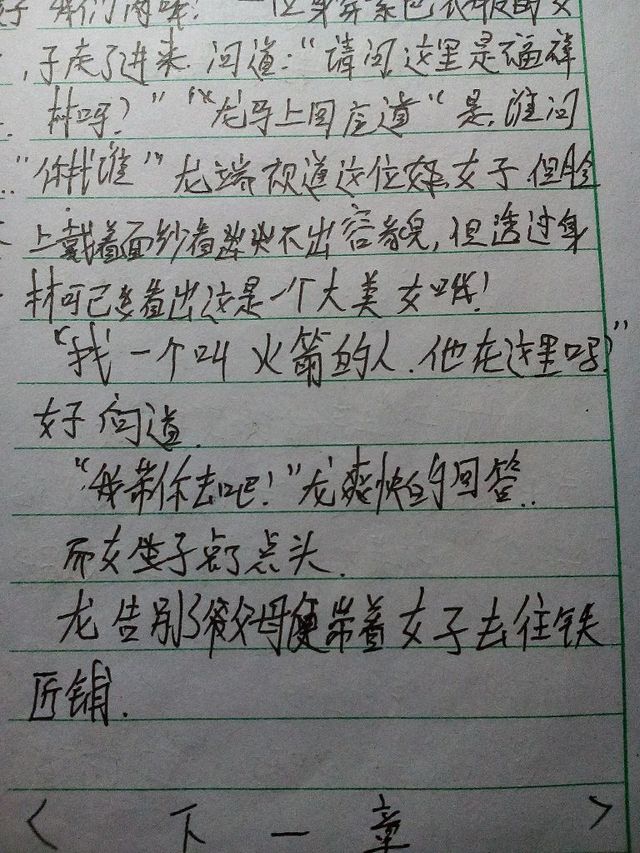 子 我们 一位身穿紫色衣服的女
,子走了进来.问道:“请问,这里是福祥
村吗?” “龙马上回应道“是,谁问
“你找谁”龙端视道这位女子但脸
上戴着面纱看不出容貌,但透过身
材可已看出这是一个大美女哦!
“找一个叫火箭的人.他在这里吗?”
女子问道.
“我带你去吧!”龙爽快的回答.
而女子点了点头.
龙告别了父母便带着女子去往铁
匠铺.
< 下一章 >